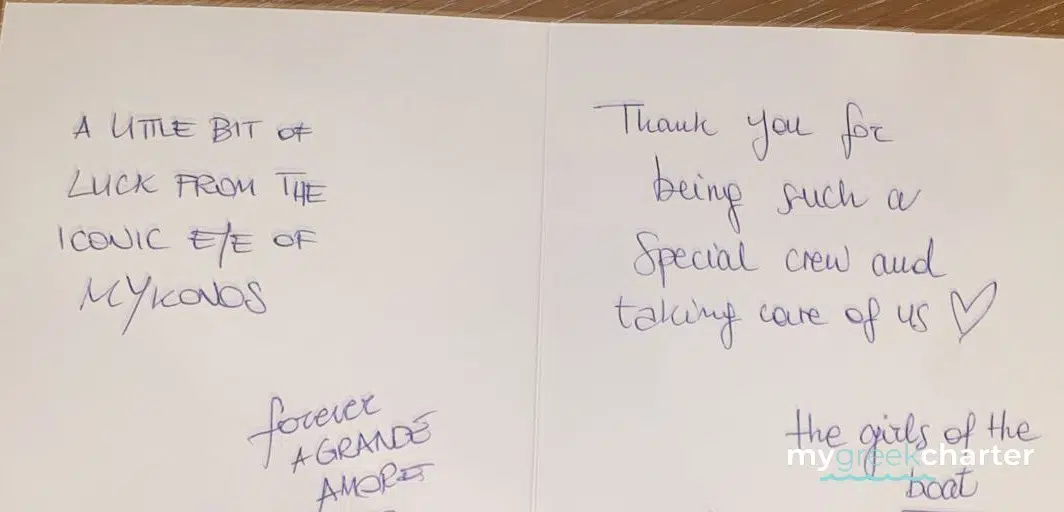 A LITTLE BIT OF
LUCK FROM THE
ICONIC EYE OF
MYKONOS
forever
A GRANDE
AMORE
Thank you for
being such a
Special crew and
taking care of us ♡
the girls of the
boat
mygreekcharter